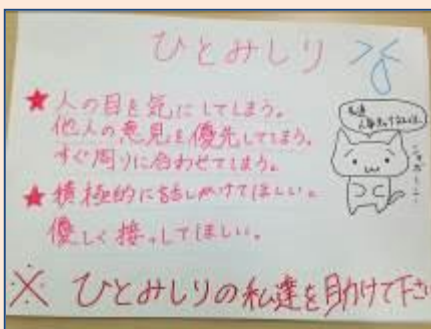 ひとみしり
★人の目を気にしてしまう。
他人の意見を優先してしまう。
すぐ周りに合わせてしまう。
★積極的に話しかけてほしい。
優しく接してほしい。
※ ひとみしりの私達を助けて下さ